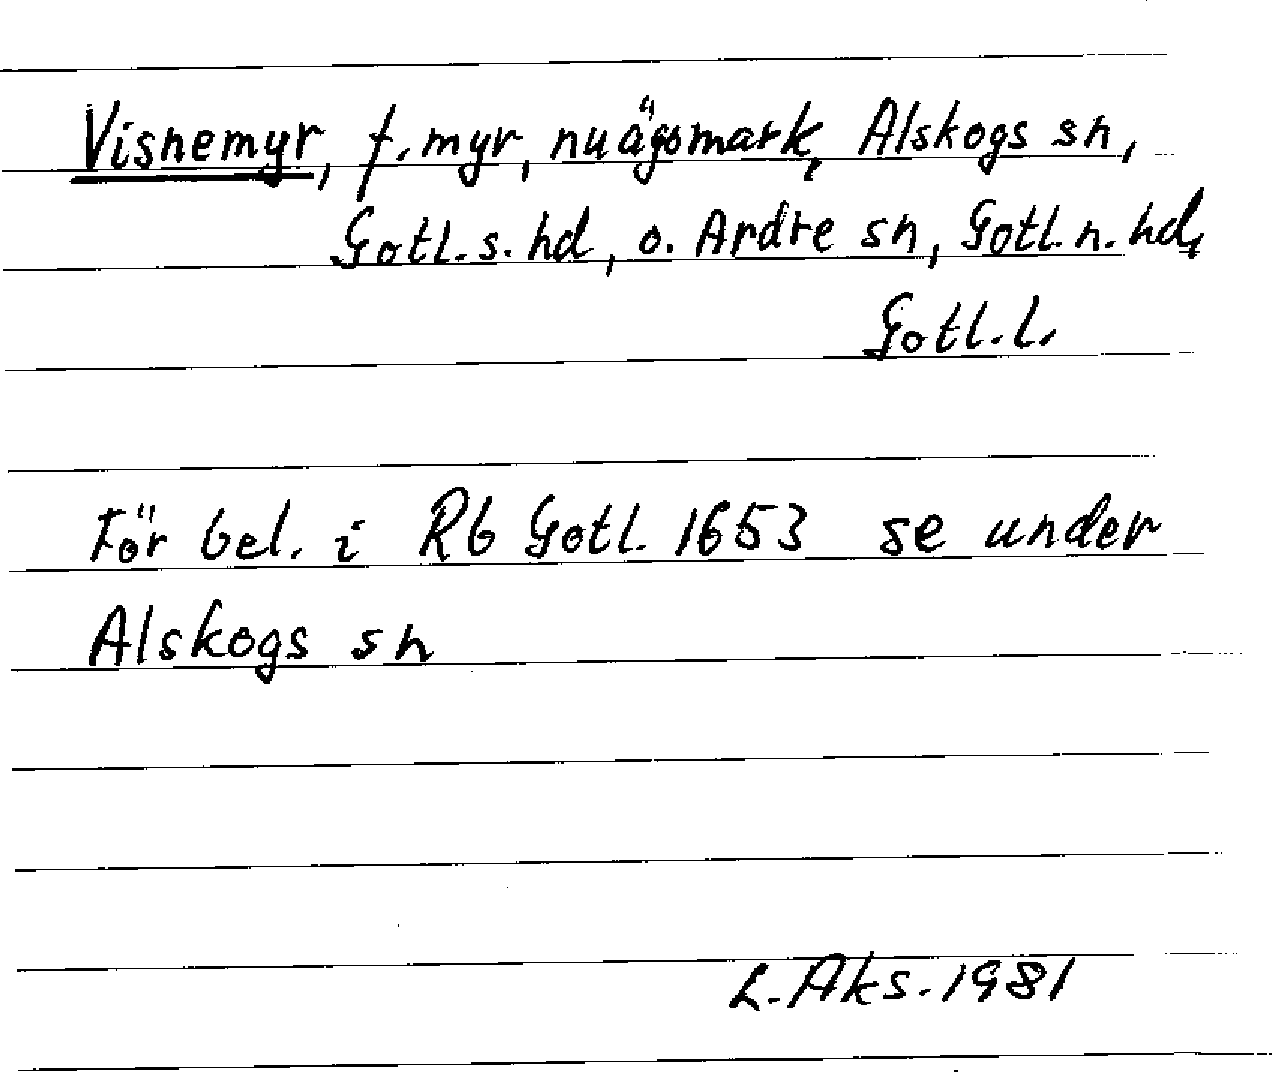 Visnemyr, f. myr, nu ägomark, Alskogs sn,
Gotl. s. hd, o. Ardre sn, Gotl. n. hd,
Gotl. l.
För bel. i Rb Gotl. 1653 se under
Alskogs sn
L. Aks. 1981